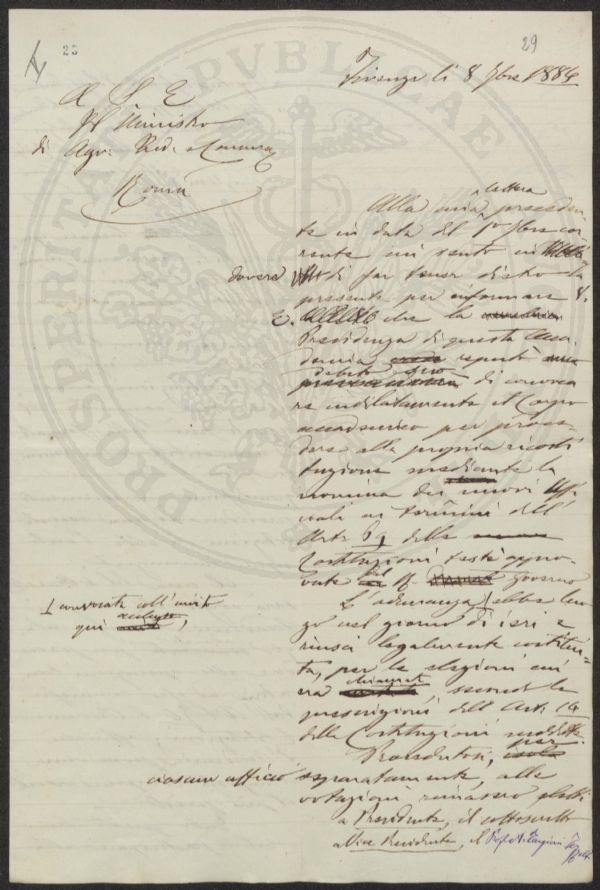 23
29
Firenze li 8 9bre 1884
A S E
Il Ministro
di Agr. Ind. e Commer.
Roma
lettera
Alla mia preceden
te in data del 1° 9bre cor
rente mi sento in
dovere di far tener dietro la
presente per informare S.
E. che la
Presidenza di questa Acca
demia reputò
debito suo di convoca
re indilatamente il Corpo
accademico per proce
dere alla propria ricosti
tuzione mediante la
nomina dei nuovi Uffi
ciali ai termini dell'
Art. 61 delle
Costituzioni testè appro
vate dal R. Governo
L'adunanza ebbe luo
convocata coll'invito
qui accluso,
go nel giorno di ieri e
riuscì legalmente costitui
ta, per le elezioni cui
era chiamata, secondo le
prescrizioni dell'Art. 14
delle Costituzioni suddette.
Procedutosi, per
ciascun ufficio separatamente, alle
votazioni rimasero eletti
a Presidente, il sottoscritto
a Vice Presidente, il Prof. Targioni